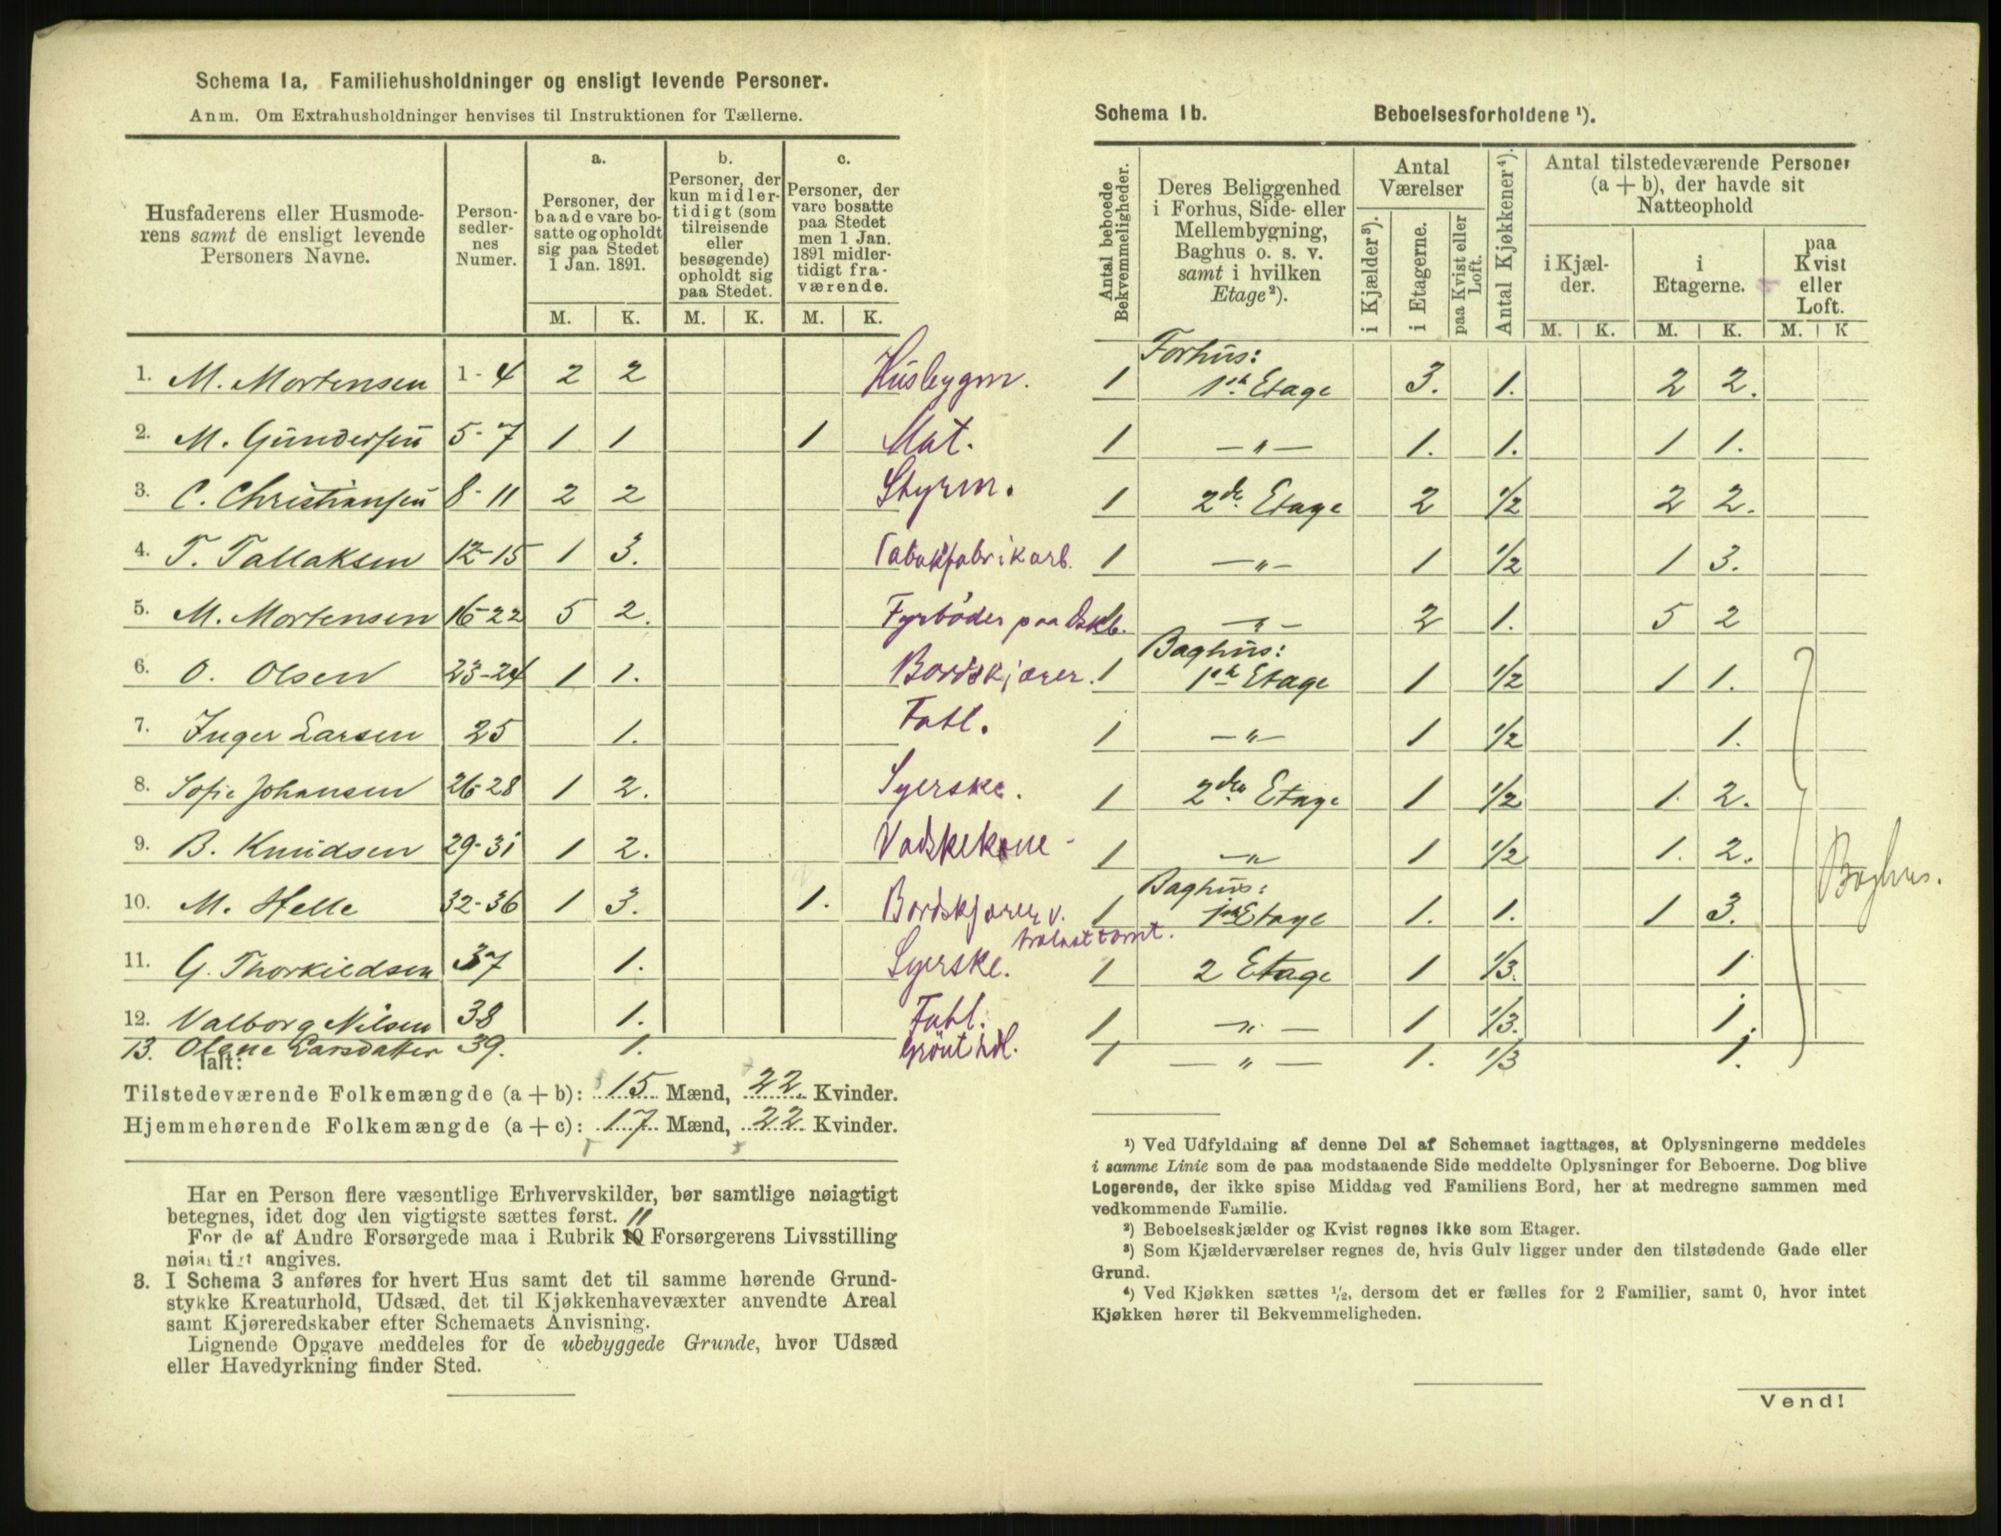 Schema 1a, Familiehusholdninger og ensligt levende Personer.
Anm. Om Extrahusholdninger henvises til Instruktionen for Tællerne.
Husfaderens eller Husmoderens samt de ensligt levende Personers Navne.
Personsedlernes Numer.
a. Personer, der baade vare bosatte og opholdt sig paa Stedet 1 Jan. 1891.
b. Personer, der kun midlertidigt (som tilreisende eller besøgende) opholdt sig paa Stedet.
c. Personer, der vare bosatte paa Stedet men 1 Jan. 1891 midlertidigt fraværende.
M. K. M. K. M. K.
1. M. Mortensen 1-4 2 2 Husbygm.
2. M. Gundersen 5-7 1 1 1 Mat.
3. C. Christiansen 8-11 2 2 Styrm.
4. T. Tallaksen 12-15 1 3. Tabakfabrikarb.
5. M. Mortensen 16-22 5 2. Fyrbøder paa Dskb.
6. O. Olsen 23-24 1 1. Bordskjærer.
7. Inger Larsen 25 1. Fattl.
8. Sofie Johansen 26-28 1 2. Syerske.
9. B. Knudsen 29-31 1 2. Vadskekone
10. M. Helle 32-36 1 3. 1. Bordskjærer v. trælasttomt.
11. G. Thorkildsen 37 1. Syerske.
12. Valborg Nilsen 38 1. Fattl.
13. Olene Larsdatter 39. 1. Grönthdl.
Ialt:
Tilstedeværende Folkemængde (a + b): 15 Mænd, 22. Kvinder.
Hjemmehørende Folkemængde (a + c): 17 Mænd, 22 Kvinder.
Har en Person flere væsentlige Erhvervskilder, bør samtlige nøiagtigt
betegnes, idet dog den vigtigste sættes først. 11
For de af Andre Forsørgede maa i Rubrik 10 Forsørgerens Livsstilling
nøiagtigt angives.
3. I Schema 3 anføres for hvert Hus samt det til samme hørende Grund-
stykke Kreaturhold, Udsæd, det til Kjøkkenhavevæxter anvendte Areal
samt Kjøreredskaber efter Schemaets Anvisning.
Lignende Opgave meddeles for de ubebyggede Grunde, hvor Udsæd
eller Havedyrkning finder Sted.
Schema 1b. Beboelsesforholdene ¹).
Antal beboede Bekvemmeligheder.
Deres Beliggenhed i Forhus, Side- eller Mellembygning, Baghus o. s. v. samt i hvilken Etage²).
Antal Værelser
i Kjælder³).
i Etagerne.
paa Kvist eller Loft.
Antal Kjøkkener⁴).
Antal tilstedeværende Personer (a + b), der havde sit Natteophold
i Kjælder.
i Etagerne.
paa Kvist eller Loft.
M. K. M. K. M. K
Forhus:
1 1ste Etage 3. 1. 2 2.
1 — „ — 1. 1. 1 1.
1 2de Etage 2 1/2 2 2.
1 — „ — 1 1/2 1 3.
1 — „ — 2 1. 5 2
Baghus:
1 1ste Etage 1 1/2 1 1.
1 — „ — 1 1/2 1.
1 2den Etage 1 1/2 1. 2.
1 — „ — 1 1/2 1. 2.
Baghus:
1 1ste Etage 1. 1. 1 3.
1 2 Etage 1 1/3. 1
1 — „ — 1 1/3. 1.
1 — „ — 1. 1/3 1.
Baghus.
¹) Ved Udfyldning af denne Del af Schemaet iagttages, at Oplysningerne meddeles
i samme Linie som de paa modstaaende Side meddelte Oplysninger for Beboerne. Dog blive
Logerende, der ikke spise Middag ved Familiens Bord, her at medregne sammen med
vedkommende Familie.
²) Beboelseskjælder og Kvist regnes ikke som Etager.
³) Som Kjælderværelser regnes de, hvis Gulv ligger under den tilstødende Gade eller
Grund.
⁴) Ved Kjøkken sættes ½, dersom det er fælles for 2 Familier, samt 0, hvor intet
Kjøkken hører til Bekvemmeligheden.
Vend!